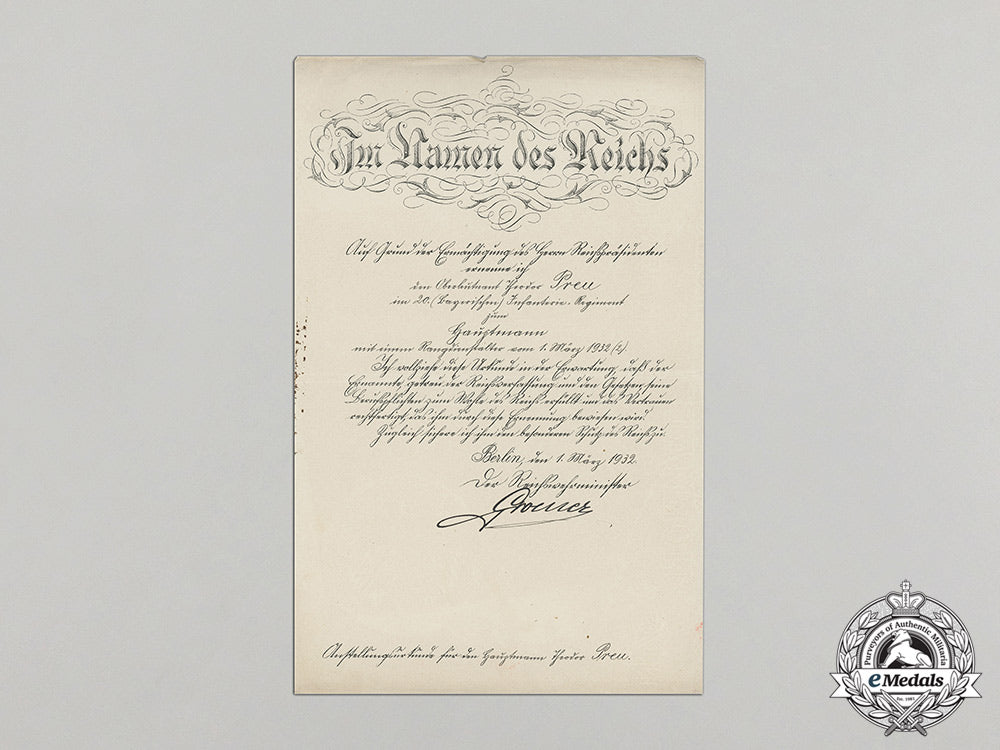 Im Namen des Reichs
Auf Grund der Ermächtigung des Herrn Reichspräsidenten
ernenne ich
den Oberleutnant Theodor Preu
im 20. (Bayerischen) Infanterie-Regiment
zum
Hauptmann
mit einem Rangdienstalter vom 1. März 1932 (2)
Ich vollziehe diese Urkunde in der Erwartung, daß der
Ernannte getreu der Reichsverfassung und den Gesetzen seine
Berufspflichten zum Wohle des Reichs erfüllt und das Vertrauen
rechtfertigt, das ihm durch diese Ernennung bewiesen wird.
Zugleich sichere ich ihm den besonderen Schutz des Reichs zu.
Berlin, den 1. März 1932.
Der Reichswehrminister
Groener
Anstellungsurkunde für den Hauptmann Theodor Preu.
Purveyors of Authentic Militaria
eMedals
Est. 1967